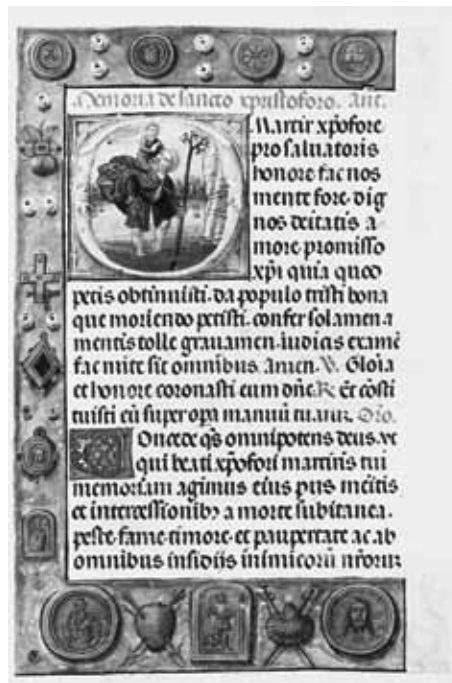 Memoria de sancto xpristoforo. Ant.
O Martir xpōfore
pro saluatoris
honore fac nos
mente fore dig
nos deitatis a
more promisso
xp̄i quia quod
petis obtinuisti. da populo tristi bona
que moriendo petisti. confer solamen a
mentis tolle grauamen. iudicis examē
fac mite sit omnibus. Amen. ℣. Gloīa
et honore coronasti eum dn̄e. ℟. Et cōsti
tuisti eū super opa manuū tuaꝝ. Oīo.
Concede q̄s omnipotens deus. vt
qui beati xpōfori martiris tui
memoriam agimus eius piis meītis
et intercessionibꝫ a morte subitanea.
peste. fame. timore. et paupertate ac ab
omnibus insidijs inimicorū nr̄oruꝫ